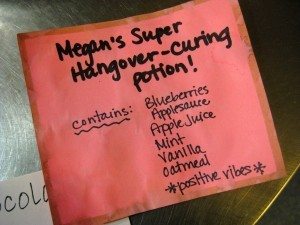 Megan's Super
Hangover-Curing
Potion!
contains: Blueberries
Applesauce
Apple Juice
Mint
Vanilla
Oatmeal
*positive vibes*